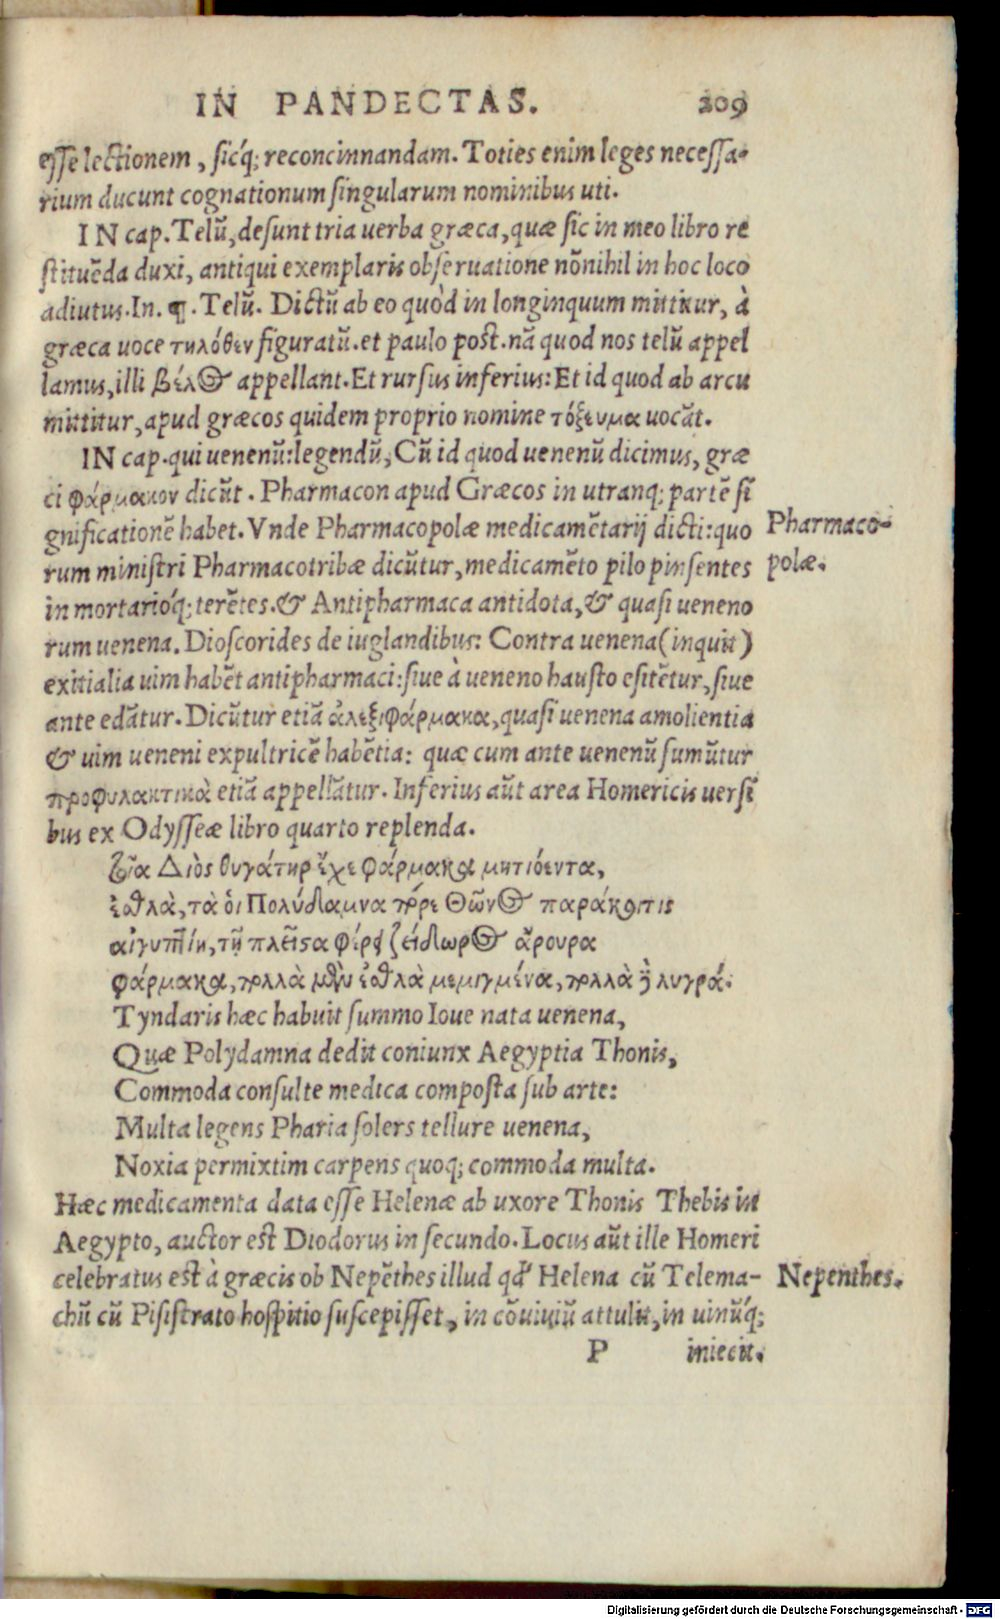 IN PANDECTAS. 209
esse lectionem, sicq́; reconcinnandam. Toties enim leges necessa-
rium ducunt cognationum singularum nominibus uti.
IN cap. Telū, desunt tria uerba græca, quæ sic in meo libro re
stituēda duxi, antiqui exemplaris obseruatione nōnihil in hoc loco
adiutus. In. ¶. Telū. Dictū ab eo quòd in longinquum mittitur, à
græca uoce τηλόθεν figuratū. et paulo post. nā quod nos telū appel
lamus, illi βέλος appellant. Et rursus inferius: Et id quod ab arcu
mittitur, apud græcos quidem proprio nomine τόξευμα uocāt.
IN cap. qui uenenū: legendū, Cū id quod uenenū dicimus, græ
ci φάρμακον dicūt. Pharmacon apud Græcos in utranq; partē si
gnificationē habet. Vnde Pharmacopolæ medicamētarij dicti: quo
Pharmaco-
rum ministri Pharmacotribæ dicūtur, medicamēto pilo pinsentes
polæ.
in mortarioq́; terētes. & Antipharmaca antidota, & quasi ueneno
rum uenena. Dioscorides de iuglandibus: Contra uenena (inquit)
exitialia uim habēt antipharmaci: siue à ueneno hausto esitētur, siue
ante edātur. Dicūtur etiā ἀλεξιφάρμακα, quasi uenena amolientia
& uim ueneni expultricē habētia: quæ cum ante uenenū sumūtur
προφυλακτικὰ etiā appellātur. Inferius aūt area Homericis uersi
bus ex Odysseæ libro quarto replenda.
τοῖα Διὸς θυγάτηρ ἔχε φάρμακα μητιόεντα,
ἐσθλὰ, τὰ οἱ Πολύδαμνα πόρε Θῶνος παράκοιτις
αἰγυπτίη, τῇ πλεῖστα φέρει ζείδωρος ἄρουρα
φάρμακα, πολλὰ μὲν ἐσθλὰ μεμιγμένα, πολλὰ δὲ λυγρά.
Tyndaris hæc habuit summo Ioue nata uenena,
Quæ Polydamna dedit coniunx Aegyptia Thonis,
Commoda consulte medica composta sub arte:
Multa legens Pharia solers tellure uenena,
Noxia permixtim carpens quoq; commoda multa.
Hæc medicamenta data esse Helenæ ab uxore Thonis Thebis in
Aegypto, auctor est Diodorus in secundo. Locus aūt ille Homeri
celebratus est à græcis ob Nepēthes illud qđ Helena cū Telema-
Nepenthes.
chū cū Pisistrato hospitio suscepisset, in cōuiuiū attulit, in uinūq́;
P iniecit.
Digitalisierung gefördert durch die Deutsche Forschungsgemeinschaft - DFG